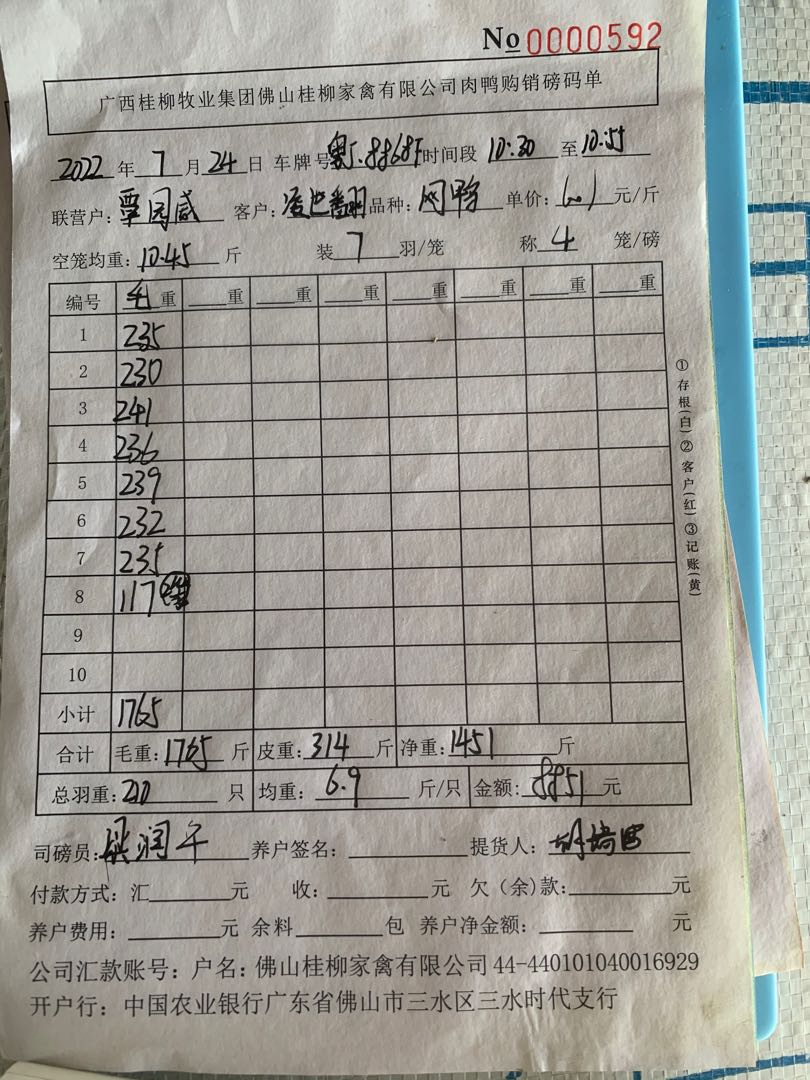 No 0000592
广西桂柳牧业集团佛山桂柳家禽有限公司肉鸭购销磅码单
2022 年 7 月 24 日 车牌号 时间段 10:30 至 10:55
联营户: 覃园威 客户: 品种: 网鸭 单价: 6.1 元/斤
空笼均重: 10.45 斤 装 7 羽/笼 称 4 笼/磅
编号 毛重 重 重 重 重 重 重 重
1 235
2 230
3 241
4 236
5 239
6 232
7 235
8 117
9
10
小计 1765
合计 毛重: 1765 斤 皮重: 314 斤 净重: 1451 斤
总羽重: 210 只 均重: 6.9 斤/只 金额: 8851 元
司磅员: 梁润午 养户签名: 提货人:
付款方式: 汇 元 收: 元 欠(余)款: 元
养户费用: 元 余料 包 养户净金额: 元
公司汇款账号: 户名: 佛山桂柳家禽有限公司 44-440101040016929
开户行: 中国农业银行广东省佛山市三水区三水时代支行
①存根(白)②客户(红)③记账(黄)